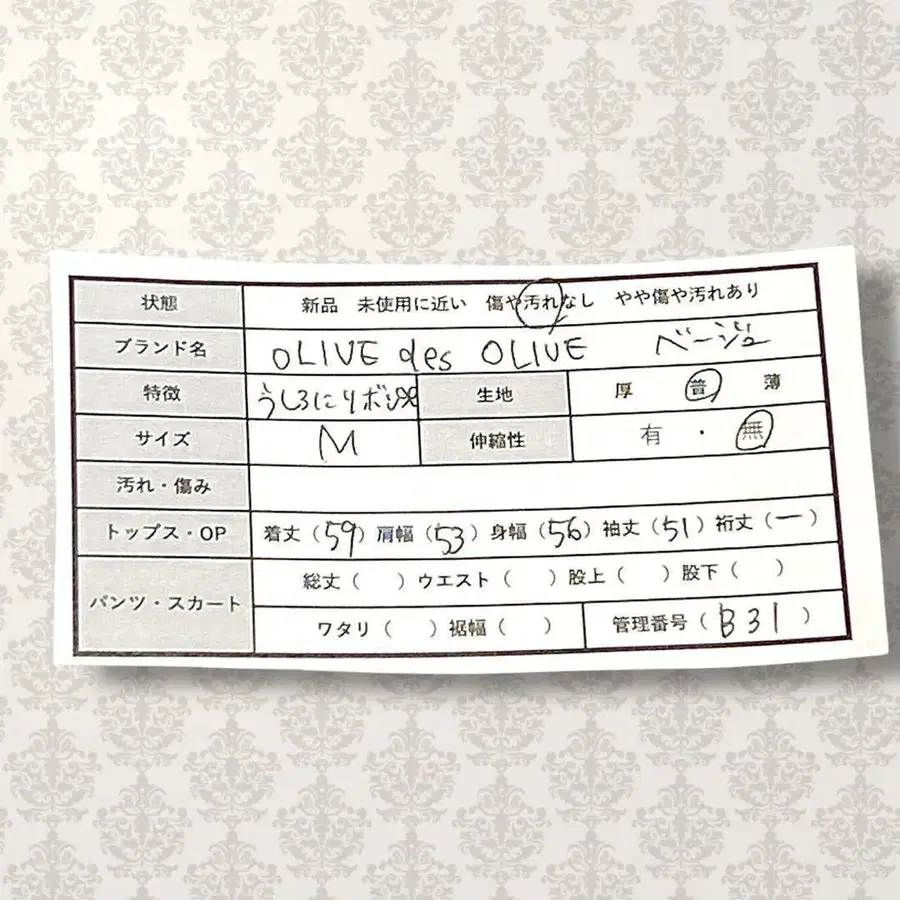 状態 新品 未使用に近い 傷や汚れなし やや傷や汚れあり
ブランド名 OLIVE des OLIVE ベージュ
特徴 うしろにリボン 生地 厚 普 薄
サイズ M 伸縮性 有 ・ 無
汚れ・傷み
トップス・OP 着丈（59）肩幅（53）身幅（56）袖丈（51）裄丈（ー）
パンツ・スカート 総丈（ ）ウエスト（ ）股上（ ）股下（ ）
ワタリ（ ）裾幅（ ） 管理番号（B31）